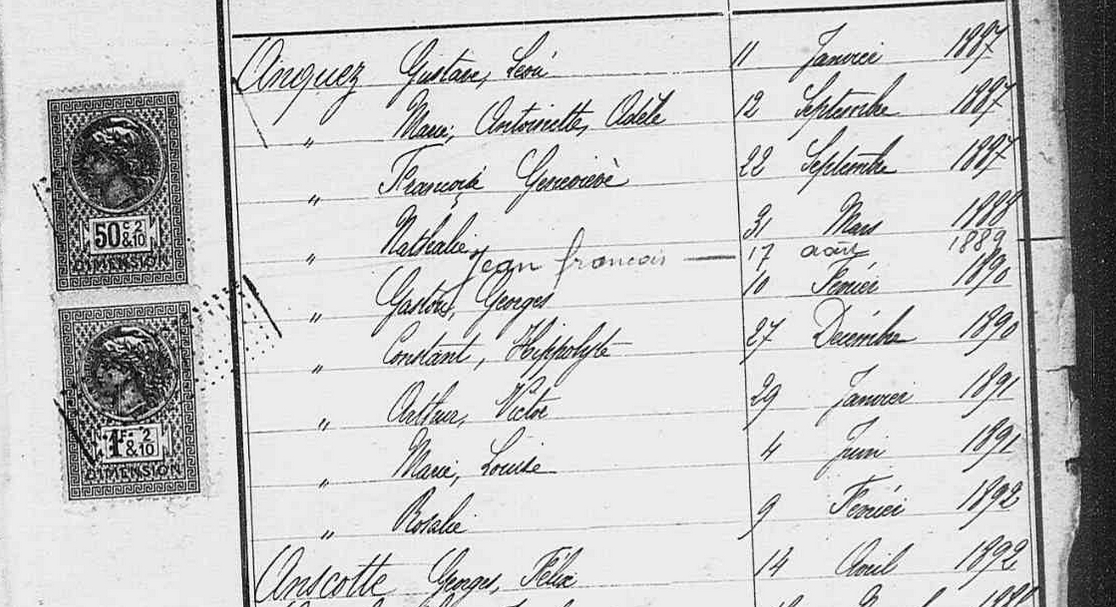 Anquez Gustave, Léon 11 Janvier 1887
" Marie, Antoinette, Adèle 12 Septembre 1887
" Françoise Geneviève 22 Septembre 1887
" Nathalie 31 Mars 1888
Jean francois — 17 août 1889
" Gaston, Georges 10 Février 1890
" Constant, Hippolyte 27 Décembre 1890
" Arthur, Victor 29 Janvier 1891
" Marie, Louise 4 Juin 1891
" Rosalie 9 Février 1892
Anscotte Georges, Félix 14 Avril 1892
50 c 2 & 10
DIMENSION
1 F 2 & 10
DIMENSION